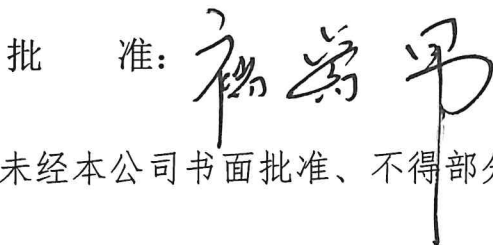 批 准：
未经本公司书面批准、不得部分